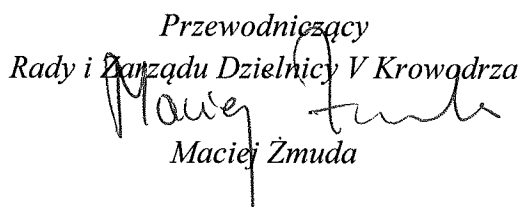 Przewodniczący
Rady i Zarządu Dzielnicy V Krowodrza
Maciej Żmuda
Maciej Żmuda